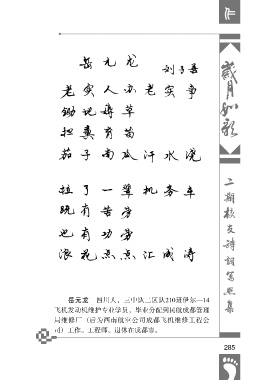 岳元龙
刘子善
老实人办老实事
锄地薅草
担粪育苗
茄子南瓜汗水浇
拉了一辈机务车
既有苦劳
也有功劳
浪花点点汇成涛
岳元龙 四川人,三中队二区队210班伊尔—14
飞机发动机维护专业学员。毕业分配到民航成都管理
局维修厂(后为西南航空公司成都飞机维修工程公
司)工作。工程师。退休在成都市。
岁月如歌
二期校友诗词写照集
285